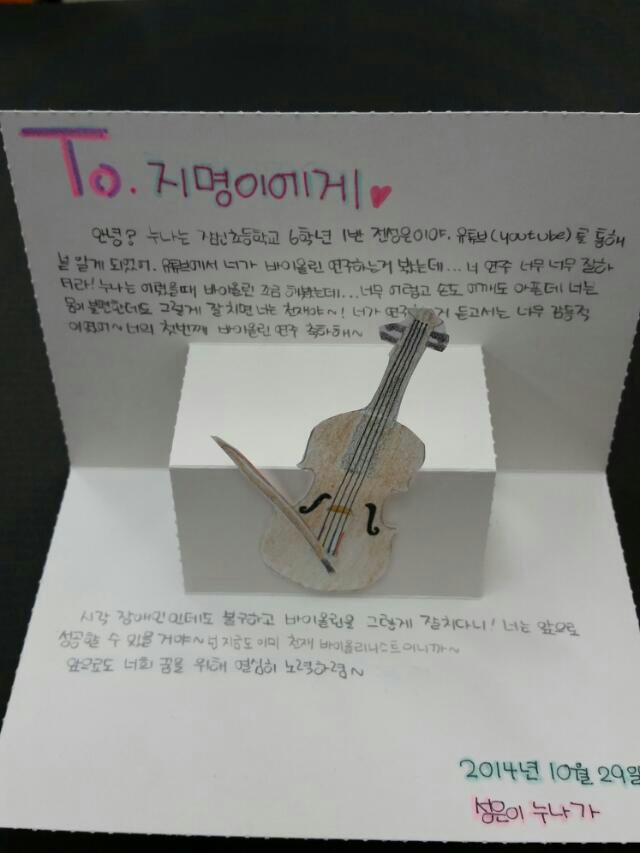 To. 지명이에게♥
안녕? 누나는 초등학교 6학년 1반 전성은이야. 유튜브(youtube)를 통해
널 알게 되었어. 유튜브에서 너가 바이올린 연주하는거 봤는데... 너 연주 너무 너무 잘하
더라! 누나는 어렸을때 바이올린 조금 해봤는데... 너무 어렵고 손도 어깨도 아픈데 너는
몸이 불편한데도 그렇게 잘 치면 너는 천재야~! 너가 연주 거 듣고서는 너무 감동적
이였어~ 너의 첫번째 바이올린 연주 축하해~
시각 장애인인데도 불구하고 바이올린을 그렇게 잘치다니! 너는 앞으로
성공할 수 있을 거야~ 넌 지금도 이미 천재 바이올리니스트이니까~
앞으로도 너의 꿈을 위해 열심히 노력하렴~
2014년 10월 29일
성은이 누나가